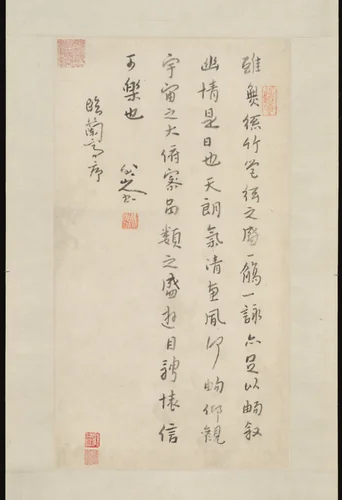 雖無絲竹管弦之盛一觴一詠亦足以暢敘
幽情是日也天朗氣清惠風和暢仰觀
宇宙之大俯察品類之盛遊目騁懷信
可樂也
八大山人
臨蘭亭序